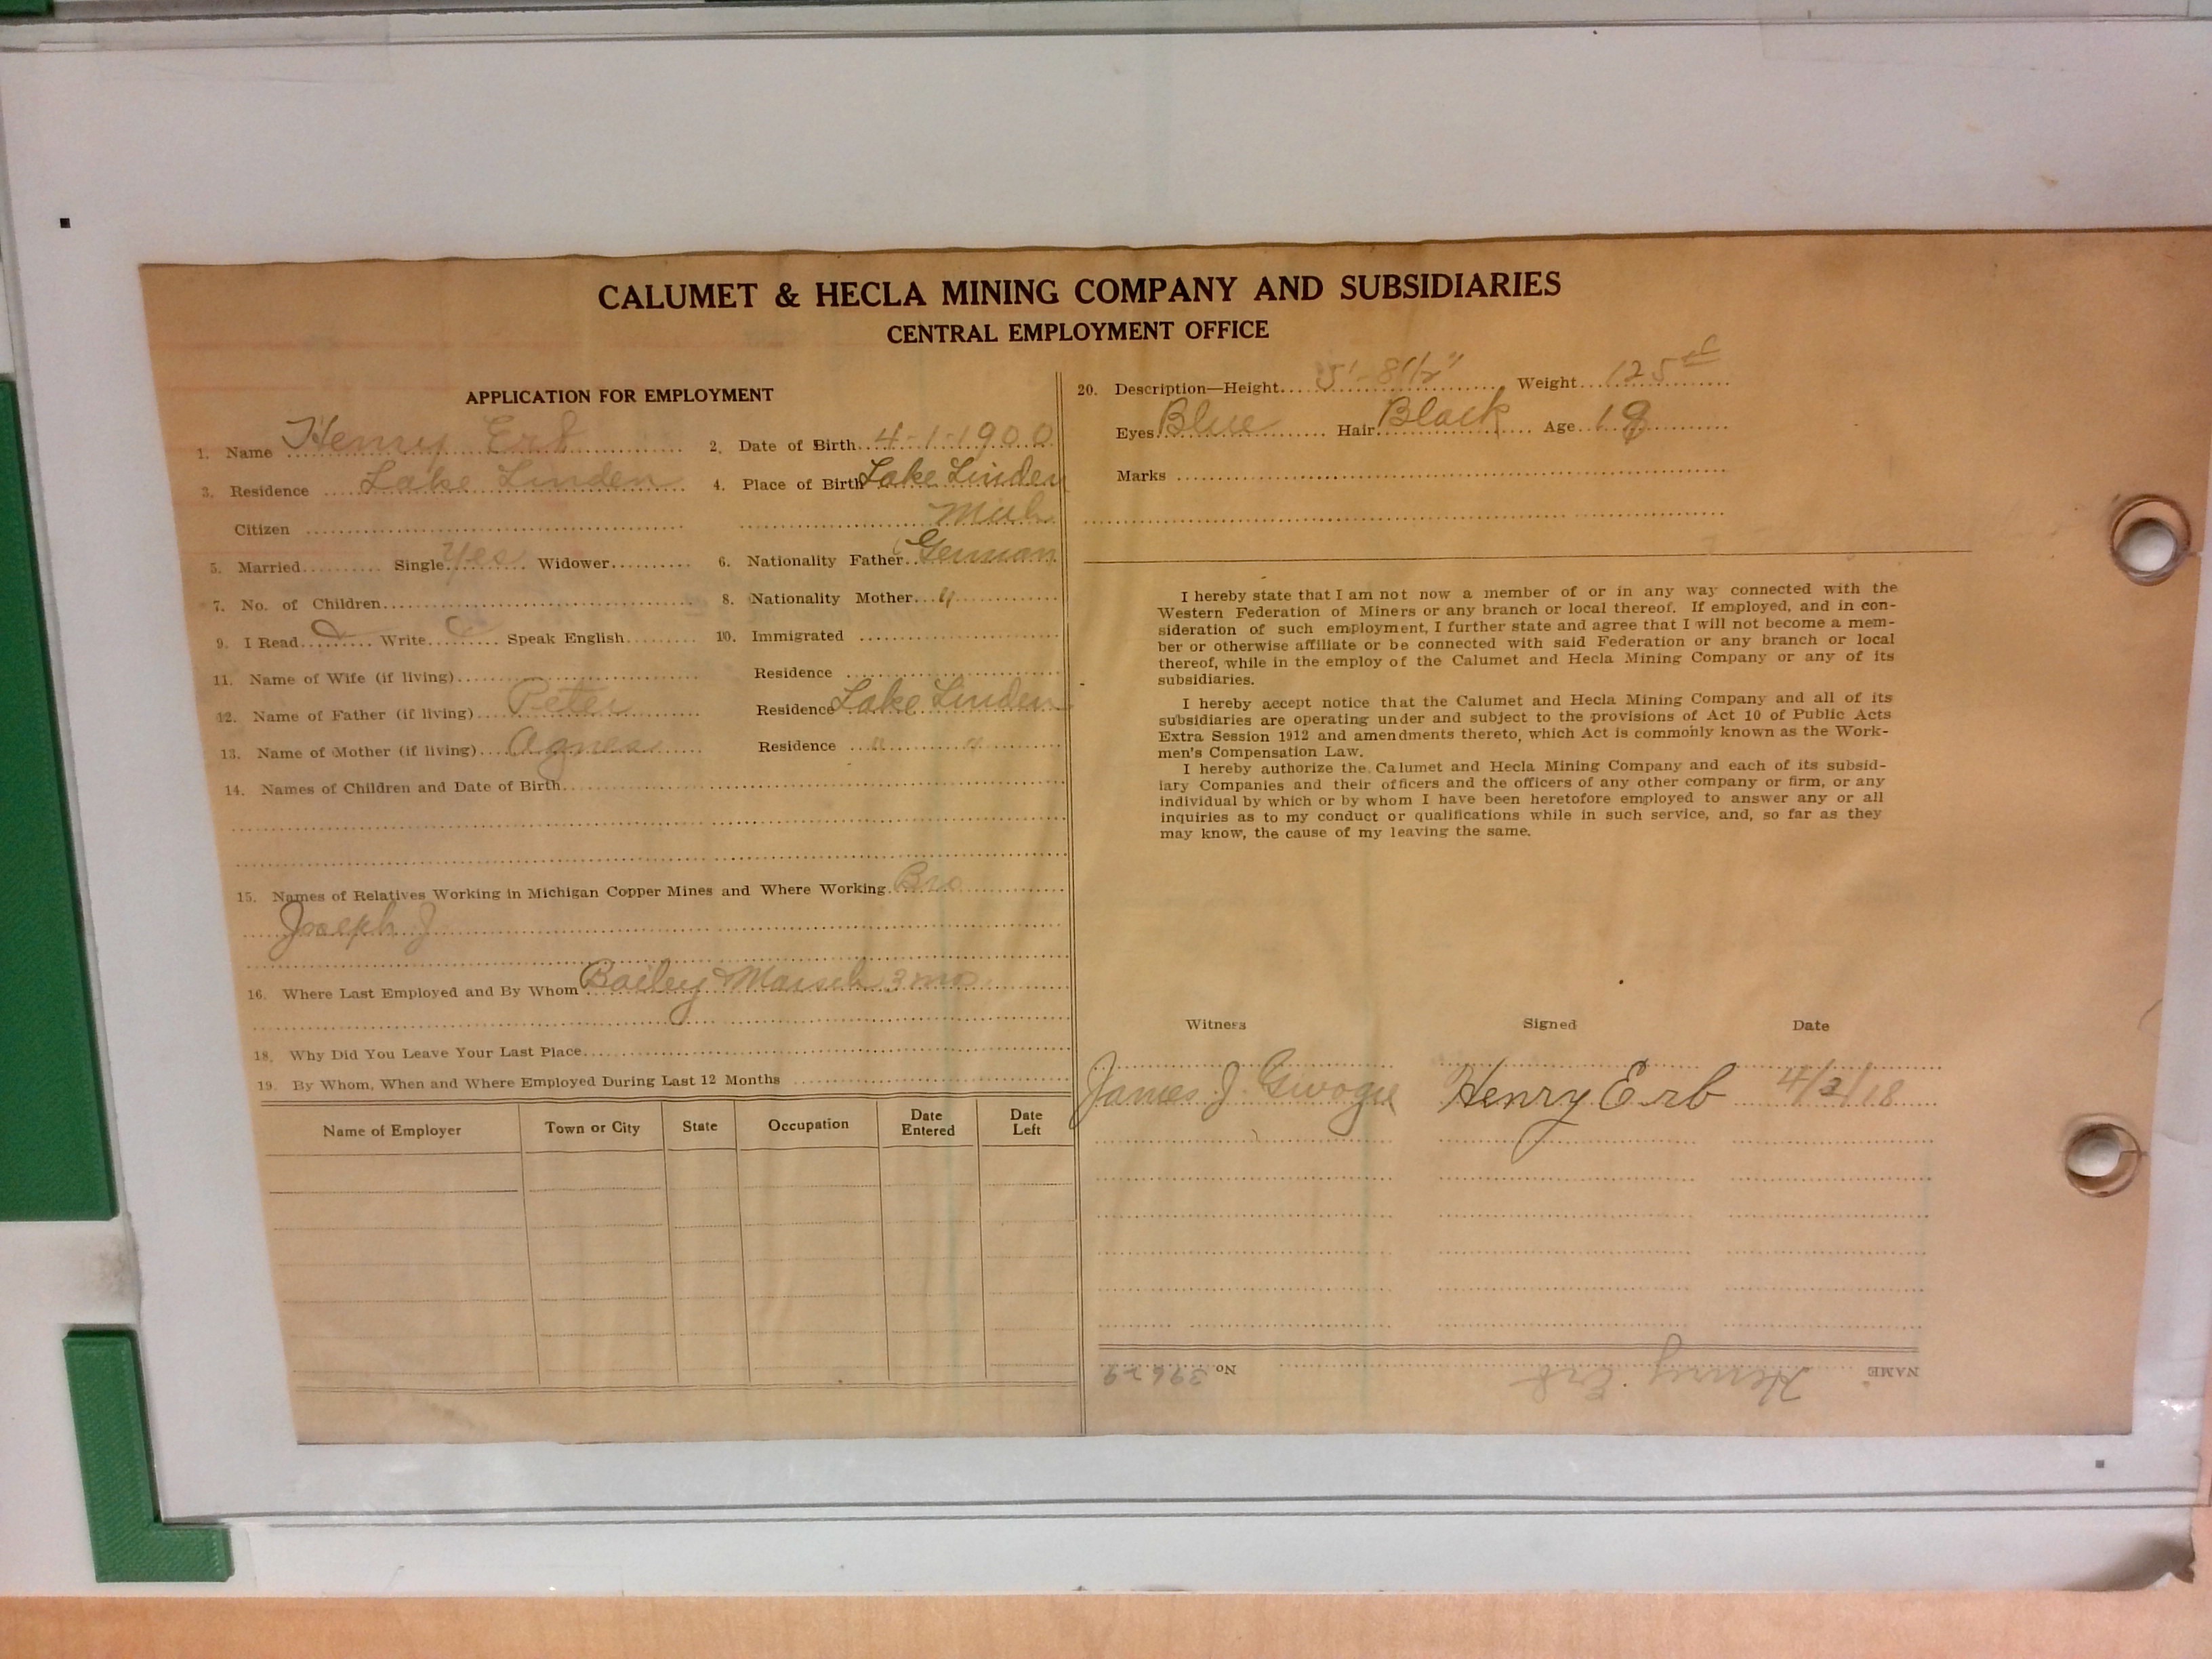 CALUMET & HECLA MINING COMPANY AND SUBSIDIARIES
CENTRAL EMPLOYMENT OFFICE
APPLICATION FOR EMPLOYMENT
1. Name Henry Erb 2. Date of Birth 4-1-1900
3. Residence Lake Linden 4. Place of Birth Lake Linden
Citizen Mich
5. Married Single Yes Widower 6. Nationality Father German
7. No. of Children 8. Nationality Mother "
9. I Read Write Speak English 10. Immigrated
11. Name of Wife (if living) Residence
12. Name of Father (if living) Peter Residence Lake Linden
13. Name of Mother (if living) Agnes Residence " "
14. Names of Children and Date of Birth
15. Names of Relatives Working in Michigan Copper Mines and Where Working Bro
Joseph J
16. Where Last Employed and By Whom Bailey 3 mo
18. Why Did You Leave Your Last Place
19. By Whom, When and Where Employed During Last 12 Months
Name of Employer Town or City State Occupation Date Entered Date Left
20. Description—Height 5'-8 1/2" Weight 125
Eyes Blue Hair Black Age 18
Marks
I hereby state that I am not now a member of or in any way connected with the
Western Federation of Miners or any branch or local thereof. If employed, and in con-
sideration of such employment, I further state and agree that I will not become a mem-
ber or otherwise affiliate or be connected with said Federation or any branch or local
thereof, while in the employ of the Calumet and Hecla Mining Company or any of its
subsidiaries.
I hereby accept notice that the Calumet and Hecla Mining Company and all of its
subsidiaries are operating under and subject to the provisions of Act 10 of Public Acts
Extra Session 1912 and amendments thereto, which Act is commonly known as the Work-
men's Compensation Law.
I hereby authorize the Calumet and Hecla Mining Company and each of its subsid-
iary Companies and their officers and the officers of any other company or firm, or any
individual by which or by whom I have been heretofore employed to answer any or all
inquiries as to my conduct or qualifications while in such service, and, so far as they
may know, the cause of my leaving the same.
Witness Signed Date
James J. Henry Erb 4/2/18
NAME Henry Erb No 39629